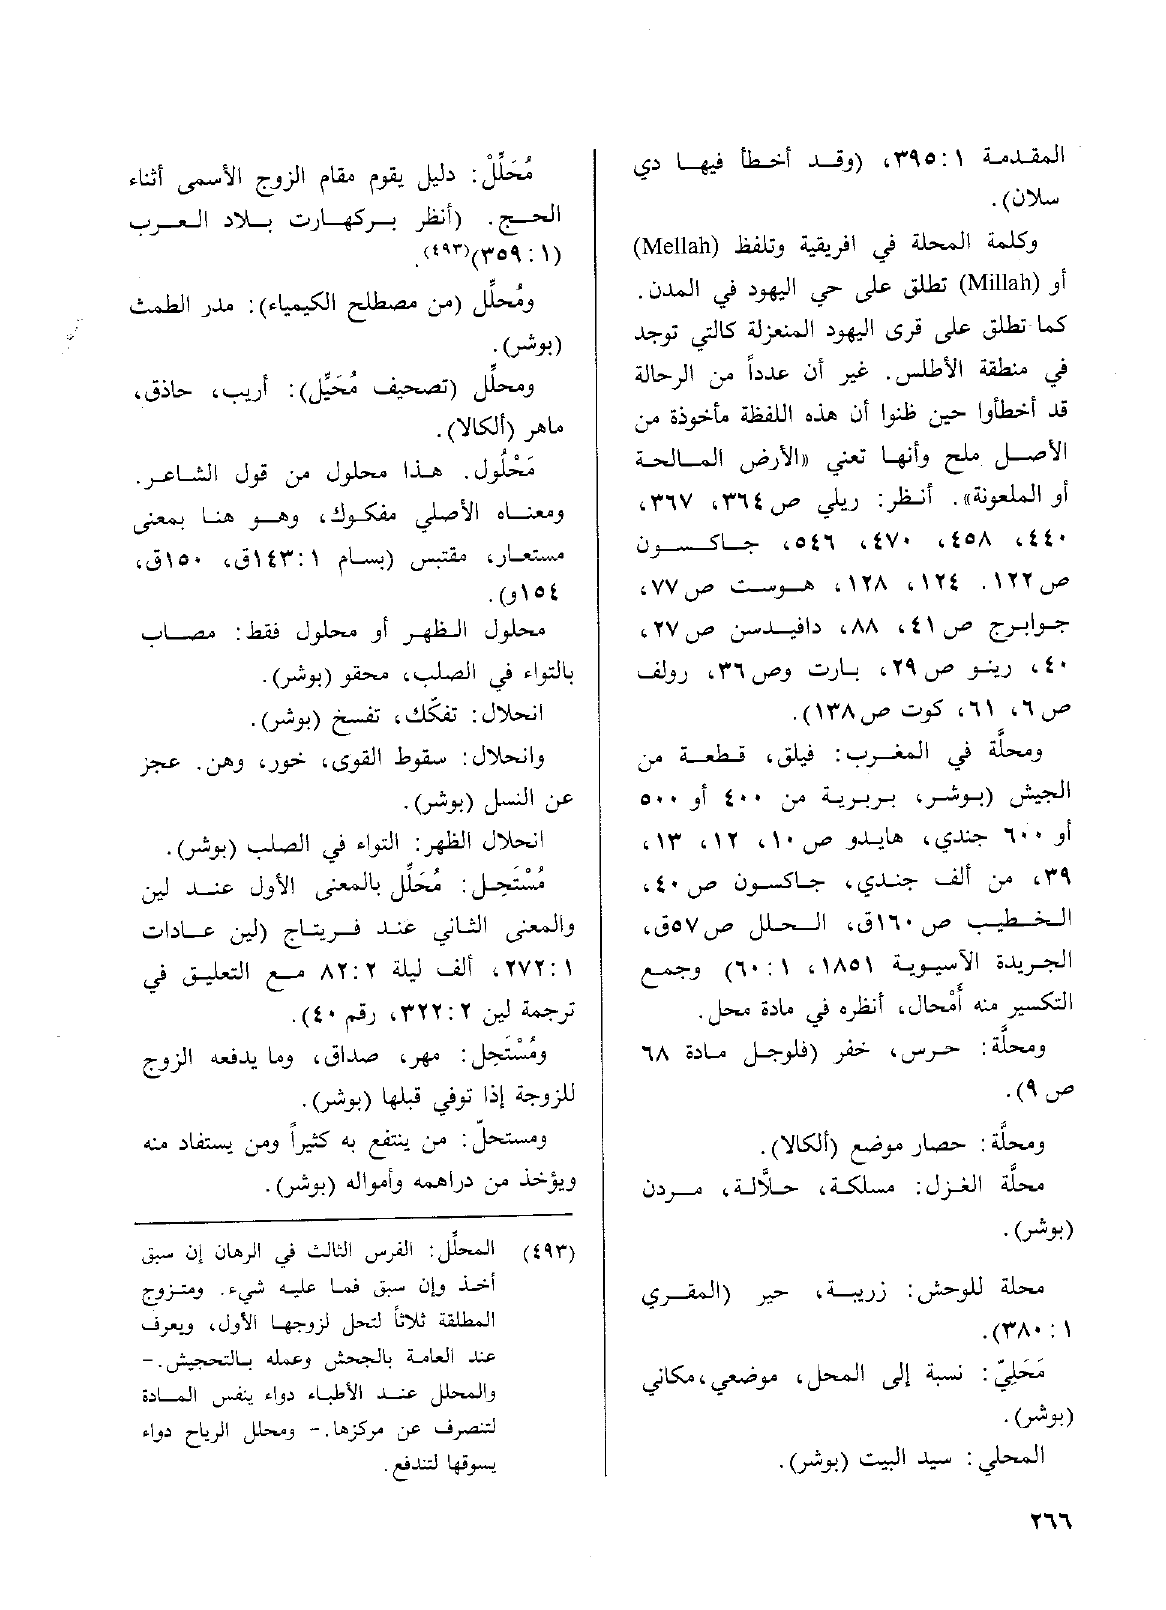 المقدمة ١: ٣٩٥، (وقد أخطأ فيها دي
سلان).
وكلمة المحلة في افريقية وتلفظ (Mellah)
أو (Millah) تطلق على حي اليهود في المدن.
كما تطلق على قرى اليهود المنعزلة كالتي توجد
في منطقة الأطلس. غير أن عدداً من الرحالة
قد أخطأوا حين ظنوا أن هذه اللفظة مأخوذة من
الأصل ملح وأنها تعني «الأرض المالحة
أو الملعونة». أنظر: ريلي ص٣٦٤، ٣٦٧،
٤٤٠، ٤٥٨، ٤٧٠، ٥٤٦، جاكسون
ص١٢٢. ١٢٤، ١٢٨، هوست ص٧٧،
جوابرج ص٤١، ٨٨، دافيدسن ص٢٧،
٤٠، رينو ص٢٩، بارت وص٣٦، رولف
ص٦، ٦١، كوت ص١٣٨).
ومحلَّة في المغرب: فيلق، قطعة من
الجيش (بوشر، بربرية من ٤٠٠ أو ٥٠٠
أو ٦٠٠ جندي، هايدو ص١٠، ١٢، ١٣،
٣٩، من ألف جندي، جاكسون ص٤٠،
الخطيب ص١٦٠ق، الحلل ص٥٧ق،
الجريدة الآسيوية ١٨٥١، ١: ٦٠) وجمع
التكسير منه أَمْحال، أنظره في مادة محل.
ومحلَّة: حرس، خفر (فلوجل مادة ٦٨
ص٩).
ومحلَّة: حصار موضع (ألكالا).
محلَّة الغزل: مسلكة، حلاَّلة، مردن
(بوشر).
محلة للوحش: زريبة، حير (المقري
١: ٣٨٠).
مَحَلِيّ: نسبة إلى المحل، موضعي، مكاني
(بوشر).
المحلي: سيد البيت (بوشر).
مُحَلِّلْ: دليل يقوم مقام الزوج الأسمى أثناء
الحج. (أنظر بركهارت بلاد العرب
١: ٣٥٩)(٤٩٣).
ومُحلِّل (من مصطلح الكيمياء): مدر الطمث
(بوشر).
ومحلِّل (تصحيف مُحَيِّل): أريب، حاذق،
ماهر (ألكالا).
مَحْلُول. هذا محلول من قول الشاعر.
ومعناه الأصلي مفكوك، وهو هنا بمعنى
مستعار، مقتبس (بسام ١: ١٤٣ق، ١٥٠ق،
١٥٤و).
محلول الظهر أو محلول فقط: مصاب
بالتواء في الصلب، محقو (بوشر).
انحلال: تفكّك، تفسخ (بوشر).
وانحلال: سقوط القوى، خور، وهن. عجز
عن النسل (بوشر).
انحلال الظهر: التواء في الصلب (بوشر).
مُسْتَحِل: مُحَلِّل بالمعنى الأول عند لين
والمعنى الثاني عند فريتاج (لين عادات
١: ٢٧٢، ألف ليلة ٢: ٨٢ مع التعليق في
ترجمة لين ٢: ٣٢٢، رقم ٤٠).
ومُسْتَحِل: مهر، صداق، وما يدفعه الزوج
للزوجة إذا توفي قبلها (بوشر).
ومستحلّ: من ينتفع به كثيراً ومن يستفاد منه
ويؤخذ من دراهمه وأمواله (بوشر).
(٤٩٣) المحلِّل: الفرس الثالث في الرهان إن سبق
أخذ وإن سبق فما عليه شيء. ومتزوج
المطلقة ثلاثاً لتحل لزوجها الأول، ويعرف
عند العامة بالجحش وعمله بالتجحيش.-
والمحلل عند الأطباء دواء ينفس المادة
لتنصرف عن مركزها.- ومحلل الرياح دواء
يسوقها لتندفع.
٢٦٦